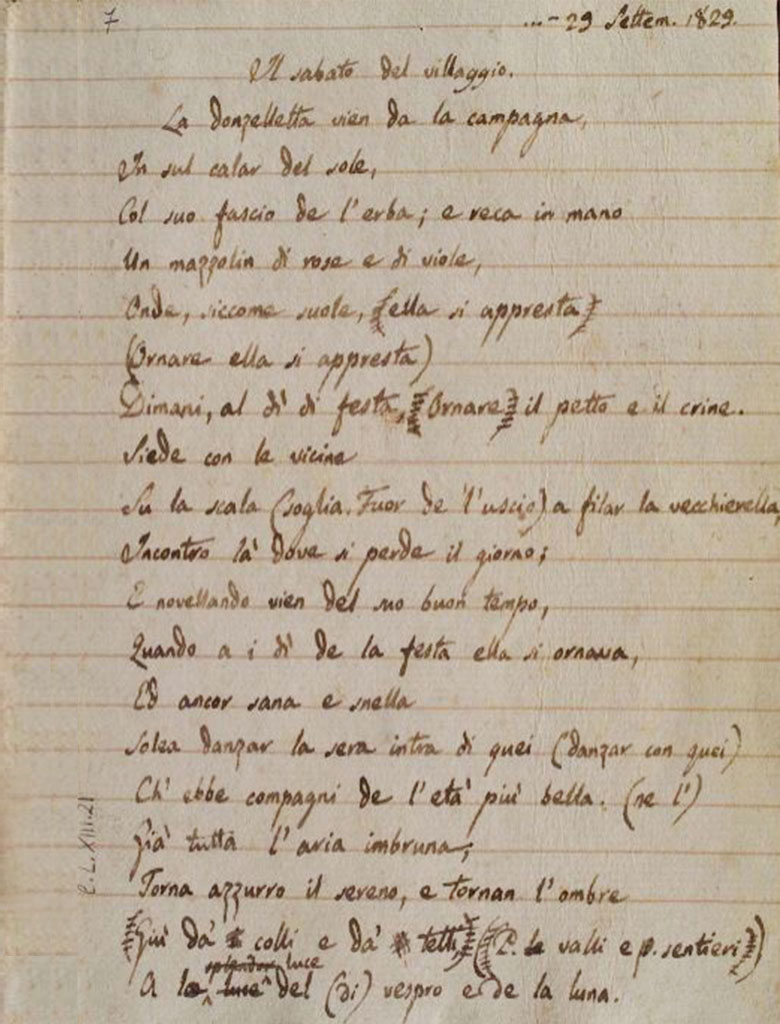 7
...- 29 Settem. 1829.
Il sabato del villaggio.
La donzelletta vien da la campagna,
In sul calar del sole,
Col suo fascio de l'erba; e reca in mano
Un mazzolin di rose e di viole,
Onde, siccome suole, (ella si appresta)
(Ornare ella si appresta)
Dimani, al dì di festa, (Ornare) il petto e il crine.
Siede con le vicine
Su la scala (soglia. Fuor de l'uscio) a filar la vecchierella,
Incontro là dove si perde il giorno;
E novellando vien del suo buon tempo,
Quando a i dì de la festa ella si ornava,
Ed ancor sana e snella
Solea danzar la sera intra di quei (danzar con quei)
Ch' ebbe compagni de l'età più bella. (ne l')
Già tutta l'aria imbruna,
Torna azzurro il sereno, e tornan l'ombre
Giù da' colli e da' tetti, (P. le valli e p. sentieri)
splendor luce
A la luce del (di) vespro e de la luna.
C.L.XIII.21